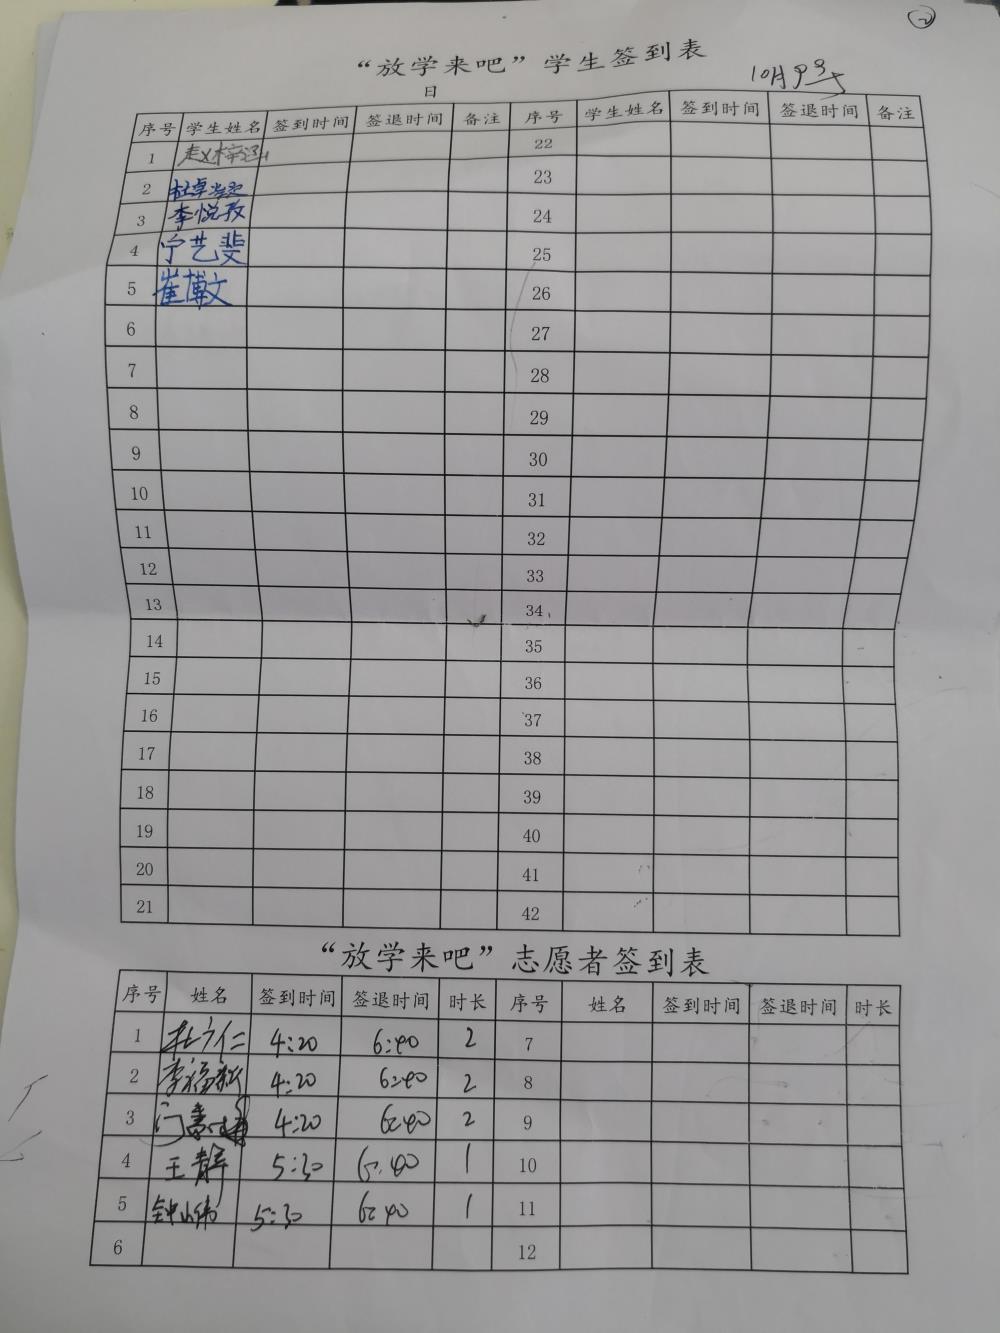 ②
“放学来吧”学生签到表
10月9号
日
序号 学生姓名 签到时间 签退时间 备注 序号 学生姓名 签到时间 签退时间 备注
1 赵梓涵 22
2 杜卓 23
3 李悦孜 24
4 宁艺斐 25
5 崔博文 26
6 27
7 28
8 29
9 30
10 31
11 32
12 33
13 34
14 35
15 36
16 37
17 38
18 39
19 40
20 41
21 42
“放学来吧”志愿者签到表
序号 姓名 签到时间 签退时间 时长 序号 姓名 签到时间 签退时间 时长
1 杜广仁 4:20 6:40 2 7
2 李福新 4:20 6:40 2 8
3 门 4:20 6:40 2 9
4 王静 5:30 6:40 1 10
5 钟山伟 5:30 6:40 1 11
6 12